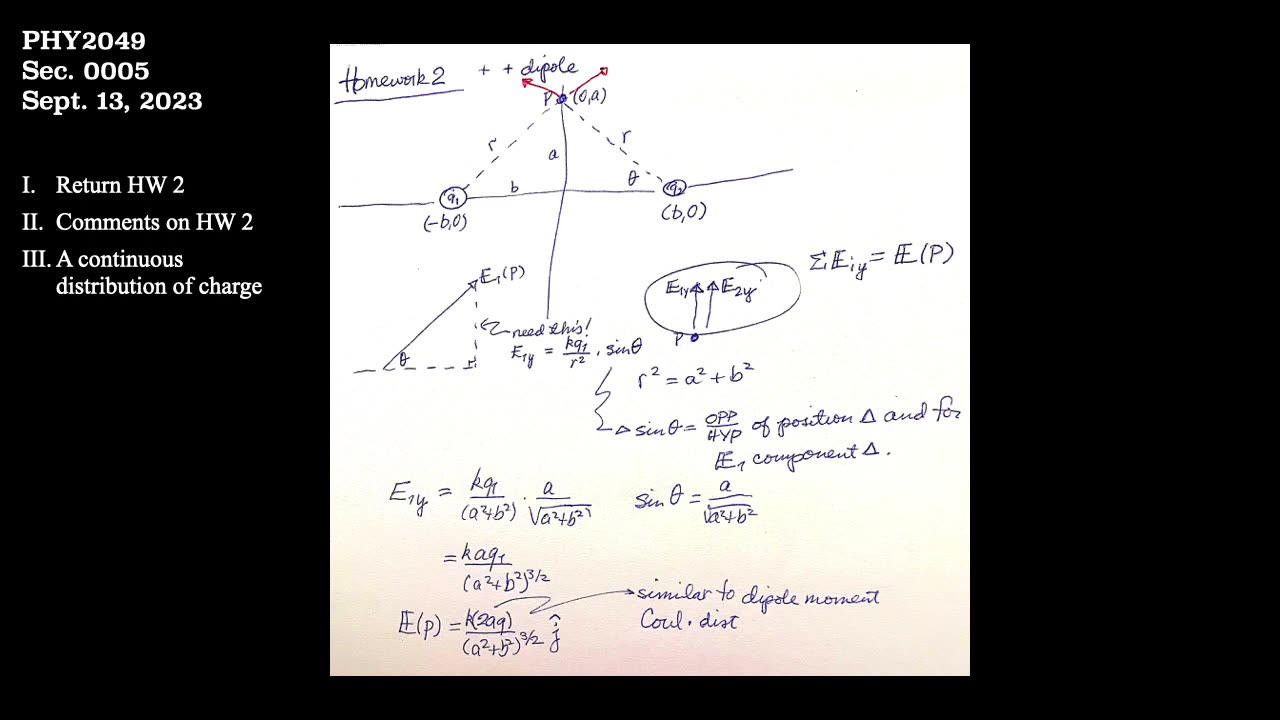 PHY2049
Sec. 0005
Sept. 13, 2023
I. Return HW 2
II. Comments on HW 2
III. A continuous
distribution of charge
Homework 2 + + dipole
P (0,a)
r r
a
b θ
q₁ q₂
(-b,0) (b,0)
E₁(P)
θ
need this!
E₁y = kq₁/r² · sinθ
E₁y E₂y
P
ΣEiy = E(P)
r² = a² + b²
sinθ = OPP/HYP of position Δ and for
E₁ component Δ.
E₁y = kq₁/(a²+b²) · a/√(a²+b²) sinθ = a/√(a²+b²)
= kaq₁/(a²+b²)^3/2
E(p) = k(2aq)/(a²+b²)^3/2 ĵ
similar to dipole moment
Coul. dist